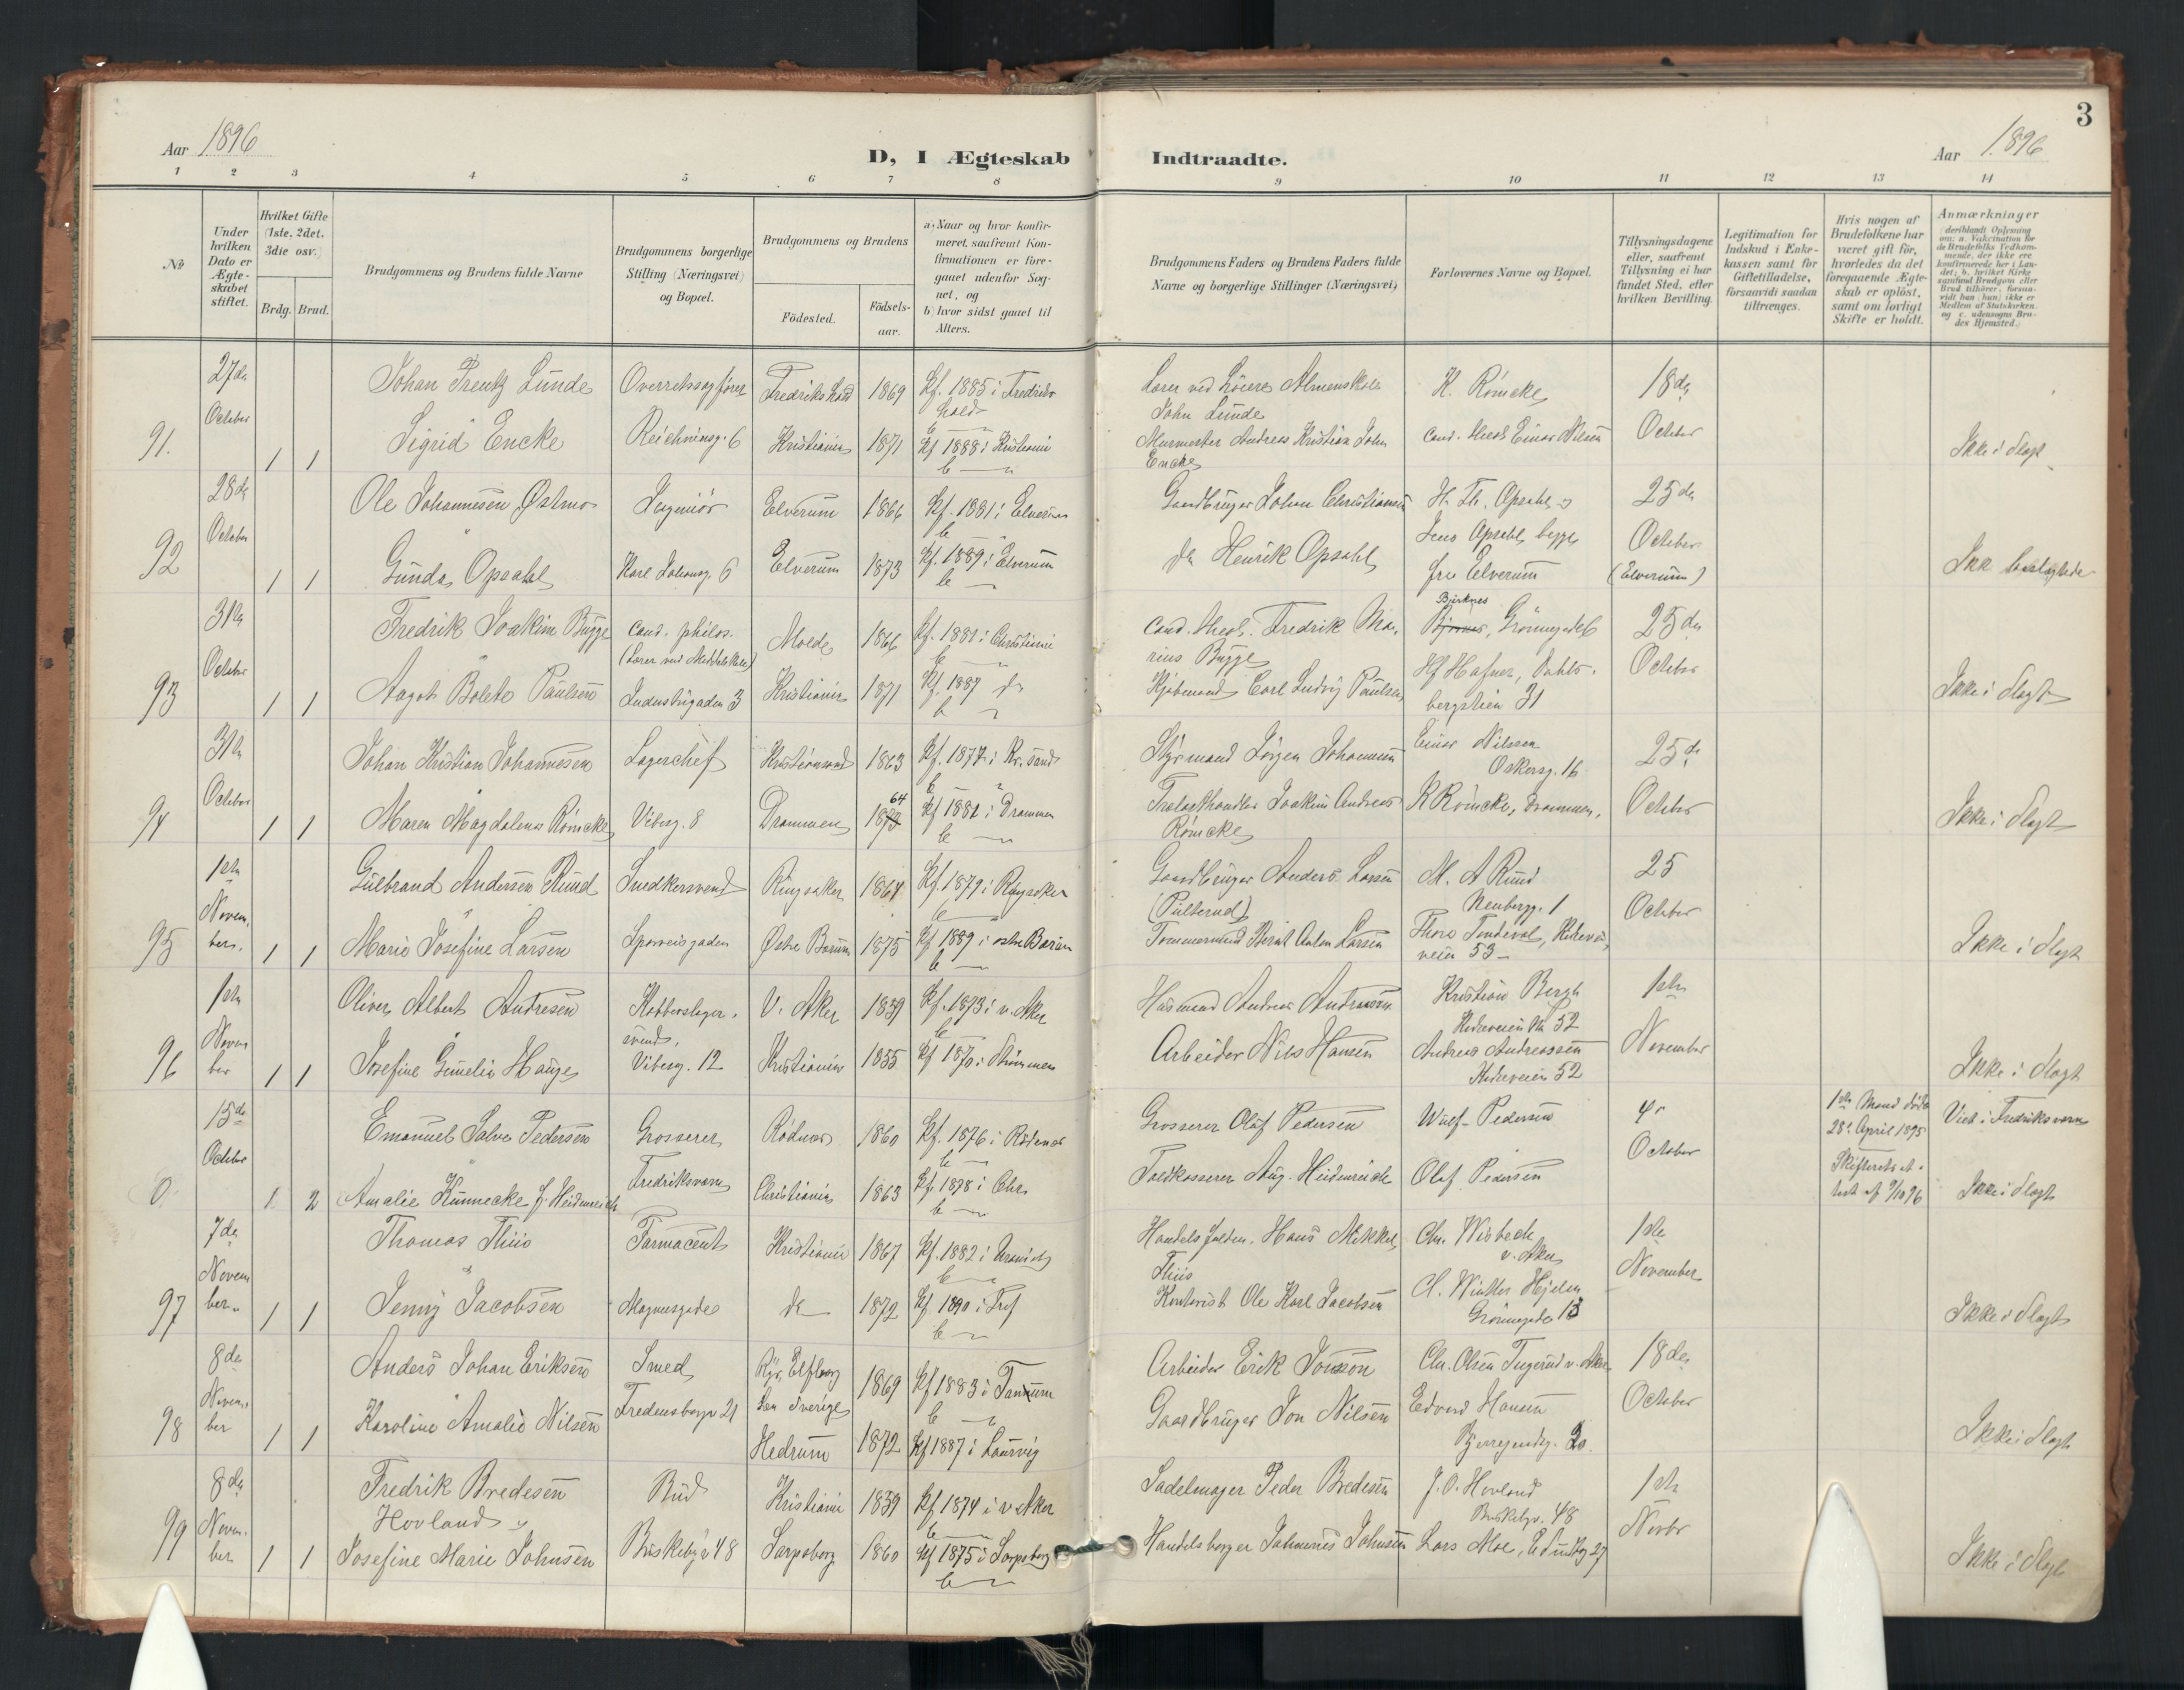 3
Aar 1896
D, I Ægteskab Indtraadte.
Aar 1896
1 2 3 4 5 6 7 8 9 10 11 12 13 14
No
Under hvilken Dato er Ægteskabet stiftet.
Hvilket Gifte (1ste, 2det, 3die osv.)
Brdg. Brud.
Brudgommens og Brudens fulde Navne
Brudgommens borgerlige Stilling (Næringsvei) og Bopæl.
Brudgommens og Brudens
Födested.
Födselsaar.
a) Naar og hvor konfirmeret, saafremt Konfirmationen er foregaaet udenfor Sognet, og
b) hvor sidst gaaet til Alters.
Brudgommens Faders og Brudens Faders fulde Navne og borgerlige Stillinger (Næringsvei)
Forlovernes Navne og Bopæl.
Tillysningsdagene eller, saafremt Tillysning ei har fundet Sted, efter hvilken Bevilling.
Legitimation for Indskud i Enkekassen samt for Giftetilladelse, forsaavidt saadan tiltrænges.
Hvis nogen af Brudefolkene har været gift för, hvorledes da det foregaaende Ægteskab er oplöst, samt om lovligt Skifte er holdt.
Anmærkninger (deriblandt Oplysning om: a. Vakcination for de Brudefolks Vedkommende, der ikke ere konfirmerede her i Landet; b. hvilket Kirkesamfund Brudgom eller Brud tilhörer, forsaavidt han (hun) ikke er Medlem af Statskirken, og c. udensogns Brudes Hjemsted.)
91. 27de October 1 1
Johan Prentz Lunde Overretssagfører Fredrikshald 1869 Kf. 1885 i Fredrikshald
Lærer ved höiere Almenskole John Lunde K. Römcke 18de
Sigrid Encke Reichweinsg. 6 Kristiania 1871 Kf 1888 i Kristiania
Murmester Andreas Kristian John Encke Cand. theol. Einar Nilsen October Ikke i Slegt
92 28de October 1 1
Ole Johannesen Østmo Ingeniör Elverum 1866 Kf. 1881 i Elverum
Gaardbruger Johan Christiansen H. Th. Opsahl og 25de
Gunda Opsahl Karl Johansg. 6 Elverum 1873 Kf. 1889 i Elverum
do Henrik Opsahl Jens Opsahl, begge fra Elverum October (Elverum) Ikke beslægtede
93 31te October 1 1
Fredrik Joakim Bugge Cand. philos. (Lærer ved Middelskole) Molde 1866 Kf. 1881 i Christiania
Cand. theol. Fredrik Marius Bugge Birknes Grönnegade 6 25de
Aagot Bolete Paulsen Industrigaden 3 Kristiania 1871 Kf. 1887 do
Kjöbmand Carl Ludvig Paulsen Hf Hafner, Dahlsbergstien 31 October Ikke i Slegt
94 31te October 1 1
Johan Kristian Johannesen Lagerchef Kristiansund 1863 Kf. 1877 i Kr.sund
Styrmand Jörgen Johannesen Einar Nilssen Oskarsg. 16 25de
Maren Magdalena Römcke Viberg. 8 Drammen 1873 64 Kf 1881 i Drammen
Trelasthandler Joakim Andreas Römcke K Römcke, Drammen. October Ikke i Slegt
95 1ste November. 1 1
Gulbrand Andersen Ruud Snedkersvend Ringsaker 1864 Kf. 1879 i Ringsaker
Gaardbruger Anders Larsen (Pulterud) M. A Ruud Neuberg. 1 25
Marie Josefine Larsen Sporveisgaden Østre Bærum 1875 Kf 1889 i østre Bærum
Tømmermand Bernt Anton Larsen October Ikke i Slegt
96 1ste November 1 1
Oliver Albert Andresen Kobberslagersvend, V. Aker 1859 Kf. 1873 i v. Aker
Husmand Andreas Andreassen Kristian Bergh 52 1ste
Josefine Gunelia Hauge Viberg. 12 Kristiania 1855 Kf 1870 i Strömmen
Arbeider Nils Hansen Andreas Andreassen 52 November Ikke i Slegt
0. 15de October 1 2
Emanuel Salve Pedersen Grosserer Rödnes 1860 Kf. 1876 i Rödenes
Grosserer Olaf Pedersen Wulf-Pedersen 4de 1ste Mand döde 28de April 1895 Viet i Fredriksværn
Amalie Künnecke f. Heidenreich Fredriksværn Christiania 1863 Kf. 1878 i Chr.
Toldkasserer Aug. Heidenreich Olaf Pedersen October Skifteretsattest af 9/10 96 Ikke i Slegt
97 7de November 1 1
Thomas Thiis Farmaceut Kristiania 1867 Kf. 1882 i Uranienb
Handelsfuldm. Hans Mikkel Thiis Chr. Wisbech v. Aker 1ste
Jenny Jacobsen Magnusgade do 1872 Kf 1890 i Tref
Kontorist Ole Karl Jacobsen Cl. Winther Hjelm Grönnegade 13 November Ikke i Slegt
98 8de November 1 1
Anders Johan Eriksen Smed Elfsborg Län Sverige 1869 Kf 1883 i Tanum
Arbeider Erik Jonsson Chr. Olsen Tugerud v. Aker 18de
Karoline Amalie Nilsen Fredensborgv 21 Hedrum 1872 Kf 1887 i Laurvig
Gaardbruger Jon Nilsen Edvard Hansen Bjerregaardsg. 20. October Ikke i Slegt
99 8de November 1 1
Fredrik Bredesen Hovland Bud Kristiania 1859 Kf 1874 i v Aker
Sadelmager Peder Bredesen J. O. Hovland Briskebyv. 48 1ste
Josefine Marie Johnsen Briskebyv 48 Sarpsborg 1860 Kf 1875 i Sarpsborg
Handelsborger Johannes Johnsen Lars Moe, 27 Novbr Ikke i Slegt